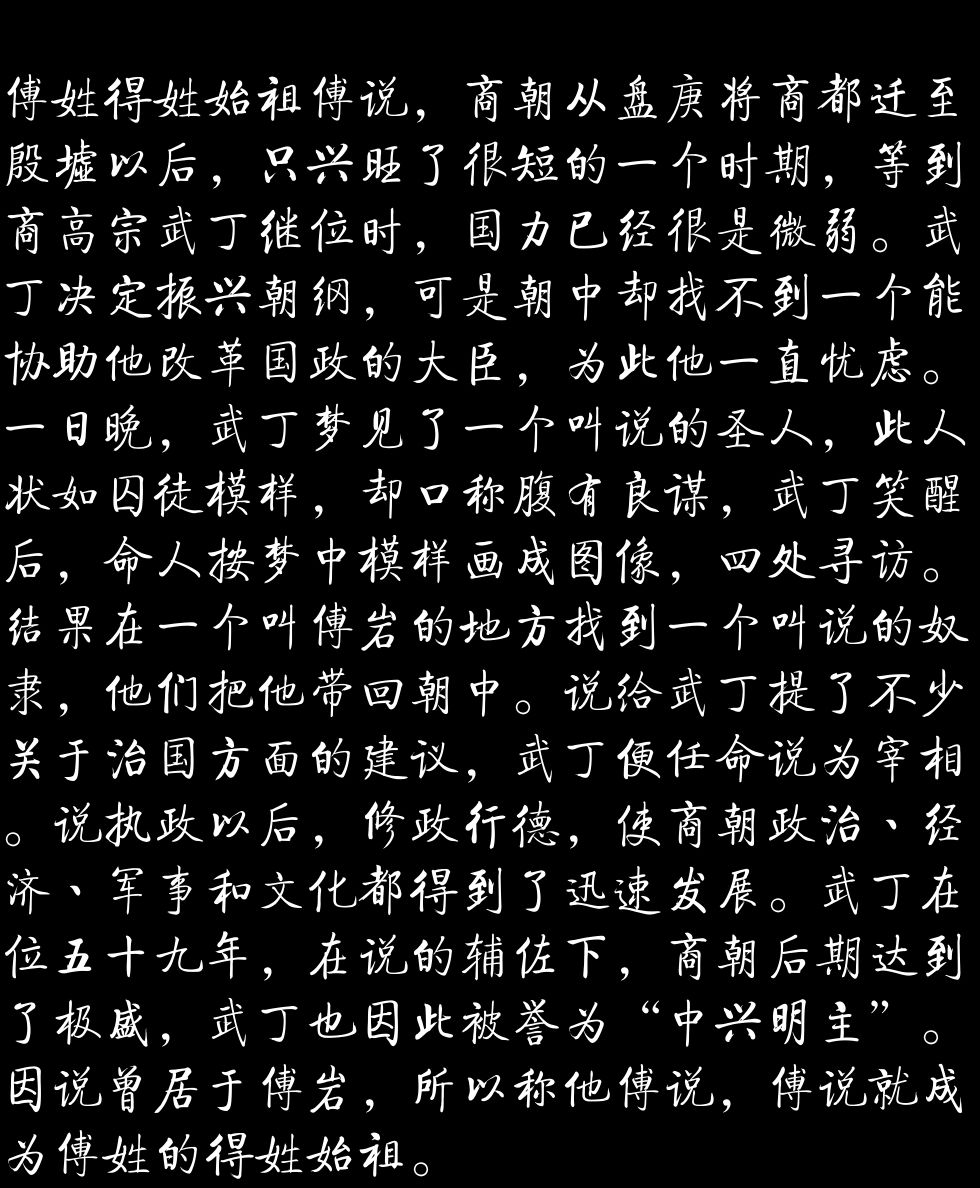 傅姓得姓始祖傅说，商朝从盘庚将商都迁至
殷墟以后，只兴旺了很短的一个时期，等到
商高宗武丁继位时，国力已经很是微弱。武
丁决定振兴朝纲，可是朝中却找不到一个能
协助他改革国政的大臣，为此他一直忧虑。
一日晚，武丁梦见了一个叫说的圣人，此人
状如囚徒模样，却口称腹有良谋，武丁笑醒
后，命人按梦中模样画成图像，四处寻访。
结果在一个叫傅岩的地方找到一个叫说的奴
隶，他们把他带回朝中。说给武丁提了不少
关于治国方面的建议，武丁便任命说为宰相
。说执政以后，修政行德，使商朝政治、经
济、军事和文化都得到了迅速发展。武丁在
位五十九年，在说的辅佐下，商朝后期达到
了极盛，武丁也因此被誉为“中兴明主”。
因说曾居于傅岩，所以称他傅说，傅说就成
为傅姓的得姓始祖。